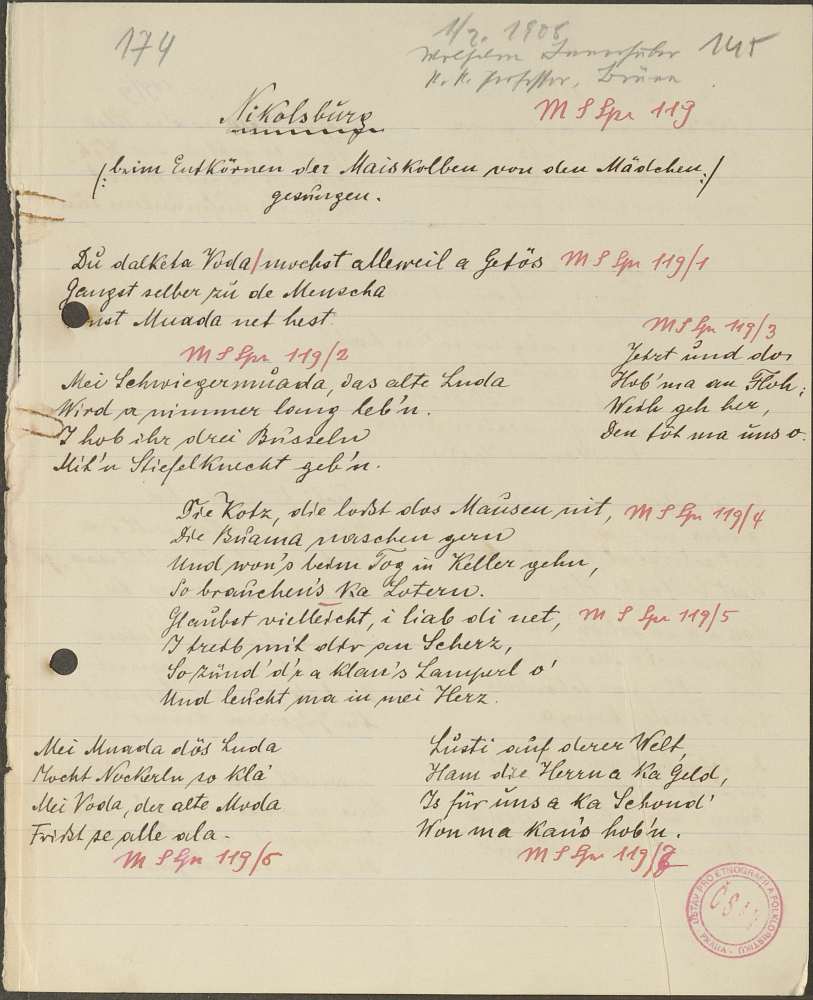 174
1/2. 1908
145
k. k. Professor, Brünn
Nikolsburg
M S Spr 119
/: beim Entkörnen der Maiskolben von den Mädchen :/
gesungen.
Du dalketa Voda/mochst alleweil a Getös M S Spr 119/1
Gangst selber zu de Menscha
Muada net hest
M S Spr 119/2
Mei Schwiegermuada, das alte Luda
Wird a nimmer lang leb'n.
I hob ihr drei Busseln
Mit'n Stiefelknecht geb'n.
M S Spr 119/3
Jetzt und do
Hob'ma an Floh,
Weib geh her,
Den töt ma uns o.
Die Kotz, die loßt das Mausen nit, M S Spr 119/4
Die Buama naschen gern
Und won's beim Tog in Keller gehn,
So brauchen's ka Lotern.
Glaubst vielleicht, i liab di net, M S Spr 119/5
I treib mit dir an Scherz,
So zünd' d'r a klan's Lamperl o'
Und leucht ma in mei Herz.
Mei Muada dös Luda
Mocht Nockerln so kla'
Mei Voda, der alte Moda
Frißt se alle ala.
M S Spr 119/6
Lusti auf derer Welt,
Ham die Herrn a ka Geld,
Is für uns a ka Schond'
Won ma kan's hob'n.
M S Spr 119/7
ÚSTAV PRO ETNOGRAFII A FOLKLORISTIKU
ČSAV
PRAHA